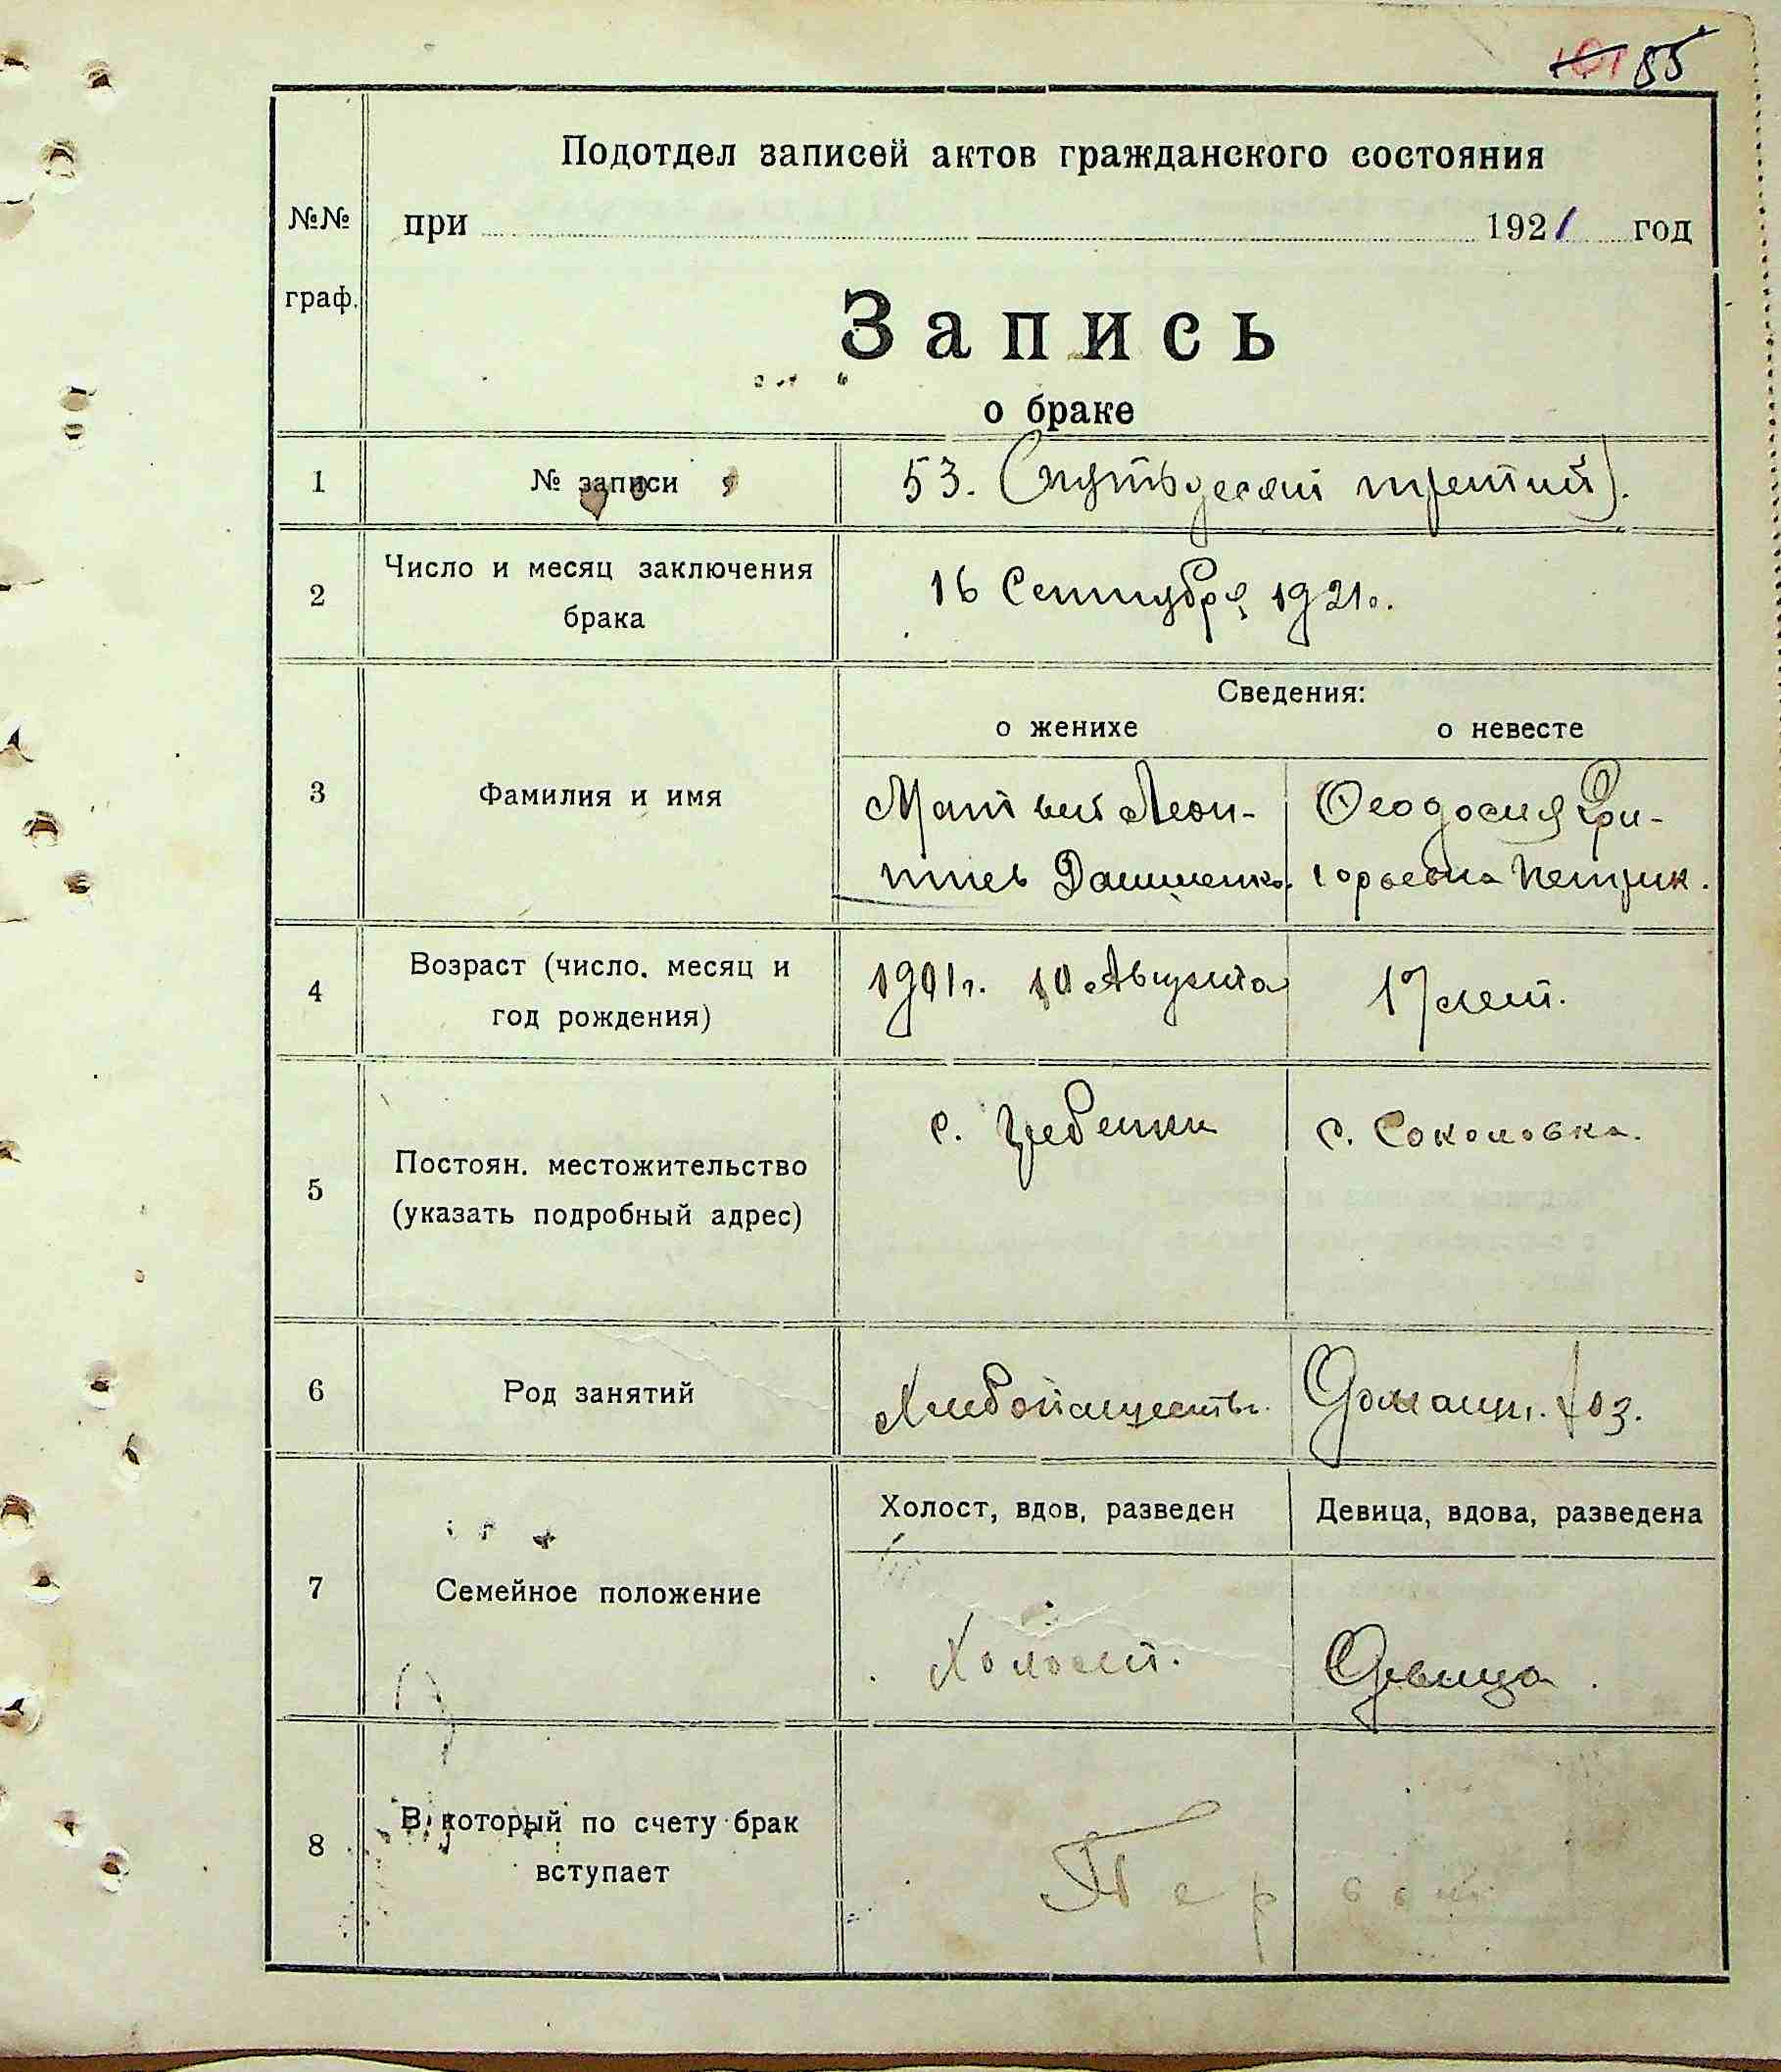 101 85
Подотдел записей актов гражданского состояния
№№ граф.
при 1921 год
Запись
о браке
1 № записи 53. (пятьдесят третий).
2 Число и месяц заключения брака 16 Сентября 1921г.
Сведения:
о женихе о невесте
3 Фамилия и имя
Матвей Леон-
тиев Данишенко.
Феодосия Гри-
горьевна Петрик.
4 Возраст (число. месяц и
год рождения)
1901г. 10 Августа 17 лет.
5 Постоян. местожительство
(указать подробный адрес)
с. Гребенки с. Соколовка.
6 Род занятий Хлебопашество. Домашн. хоз.
Холост, вдов, разведен Девица, вдова, разведена
7 Семейное положение
Холост. Девица.
8 В который по счету брак
вступает
Первый